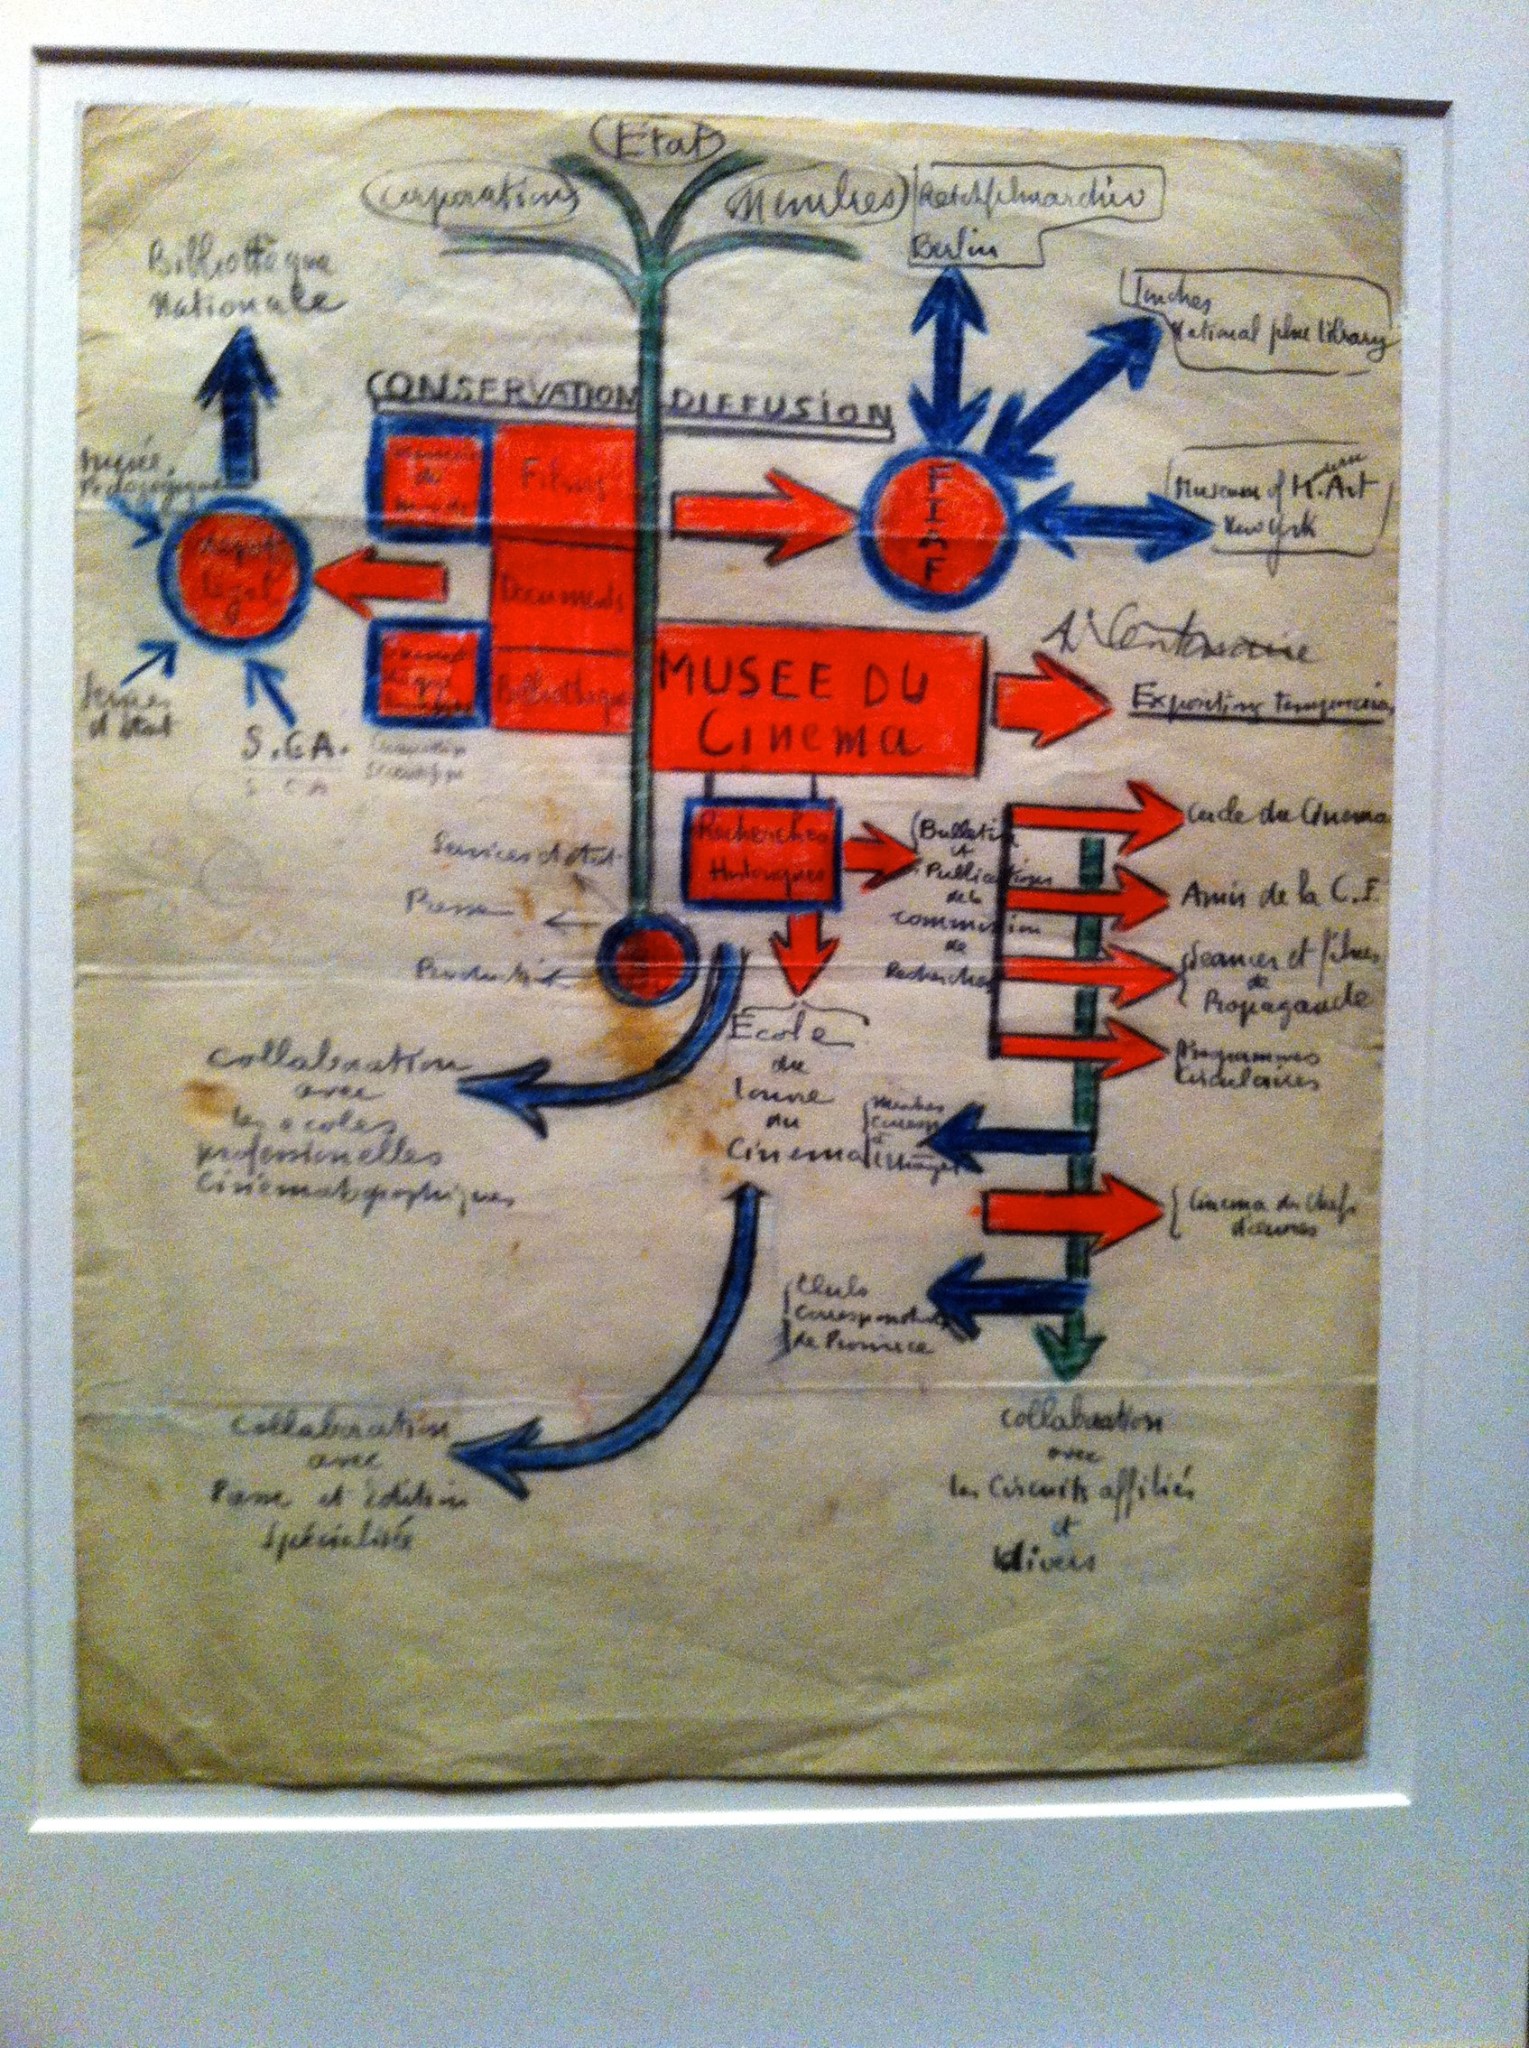 Etat
Corporations
Membres
Reichsfilmarchiv
Berlin
Bibliothèque
Nationale
Londres
National film library
CONSERVATION DIFFUSION
Musée
Pedagogique
du
Films
FIAF
Museum of Modern Art
New York
Depot
legal
Documents
Bibliothèque
MUSEE DU
CINEMA
Exposition temporaires
Services
d'état
S.C.A.
S.C.A
Recherches
Historiques
Services d'état
Presse
Bulletin
et
Publications
de la
commission
de
Recherches
Cercle du Cinema
Amis de la C.F.
Seances et films
de
Propagande
Programmes
Circulaires
Ecole
du
Louvre
du
Cinema
collaboration
avec
les ecoles
professionelles
Cinématographiques
Membres
Cinema des Chefs
d'œuvres
Clubs
Correspondants
de Province
collaboration
avec
Presse et édition
spécialisée
collaboration
avec
les Circuits affiliés
et
divers